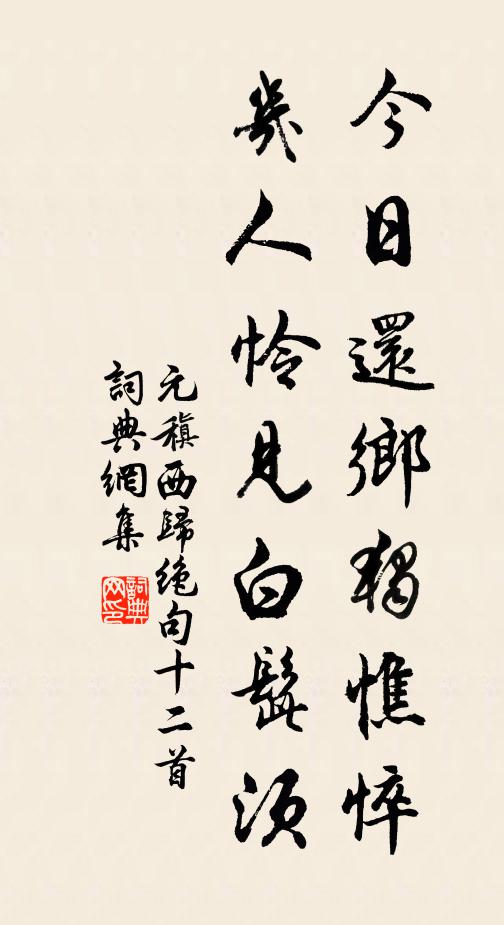 今日還鄉獨憔悴
幾人怜見白髭須
元稹西歸绝句十二首
詞典網集
詞典網印